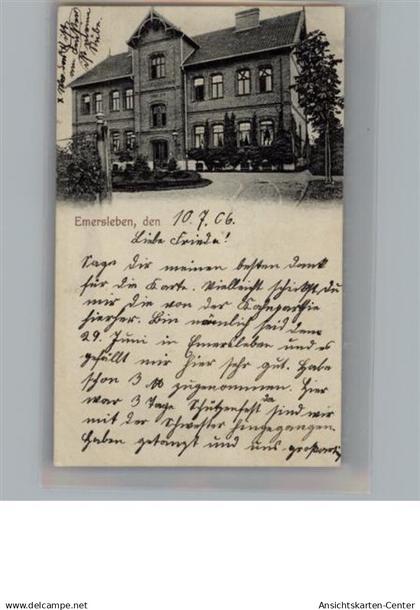 wo das x ist
im
ist meine
Stube.
Emersleben, den 10.7.06.
Liebe Frieda!
Sage dir meinen besten Dank
für die Karte. Vielleicht schickst du
mir die von der Kahnparthie
hierher. Bin nämlich seid dem
29. Juni in Emersleben und es
gefällt mir hier sehr gut. Habe
schon 3 zugenommen. Hier
war 3 Tage Schützenfest da sind wir
mit der Schwester hingegangen.
Haben getanzt und uns großartig
Ansichtskarten-Center